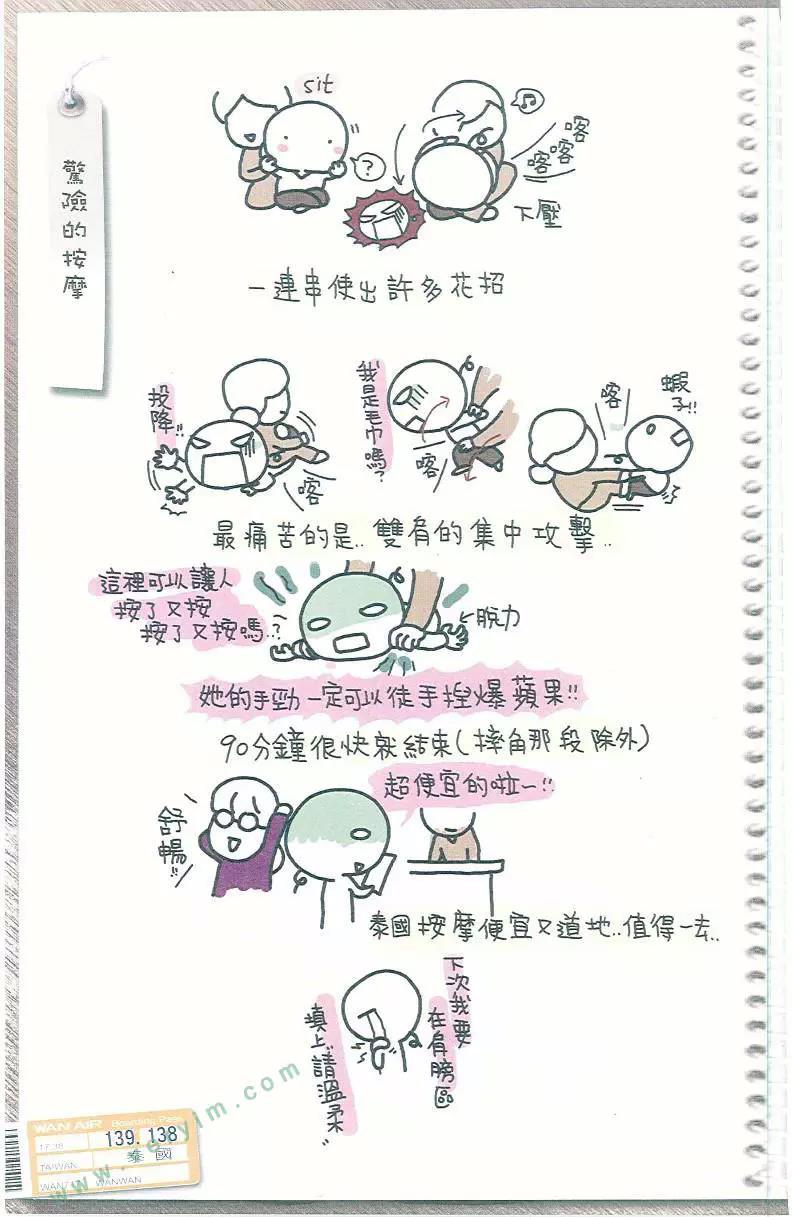 驚險的按摩
sit
?
喀
喀喀
下壓
一連串使出許多花招
投降!!
喀
我是毛巾嗎?
喀
喀
蝦子!!
最痛苦的是..雙肩的集中攻擊..
這裡可以讓人
按了又按
按了又按嗎..?
脫力
她的手勁一定可以徒手捏爆蘋果!!
90分鐘很快就結束(摔角那段除外)
超便宜的啦~!!
舒暢!!
泰國按摩便宜又道地..值得一去..
下次我要
在肩膀區
填上"請溫柔"
WAN AIR Boarding Pass
17:38
139.138
TAIWAN
泰國
WANWAN